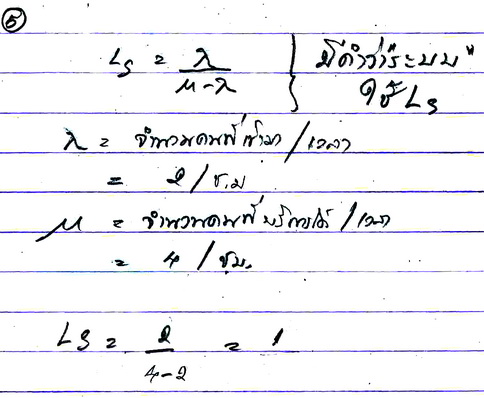 ⑤
Ls = λ / (μ-λ) } มีคำว่า "ระบบ"
ใช้ Ls
λ = จำนวนคนที่เข้ามา / เวลา
= 2 / ช.ม
μ = จำนวนคนที่บริการได้ / เวลา
= 4 / ชม.
LS = 2 / (4-2) = 1